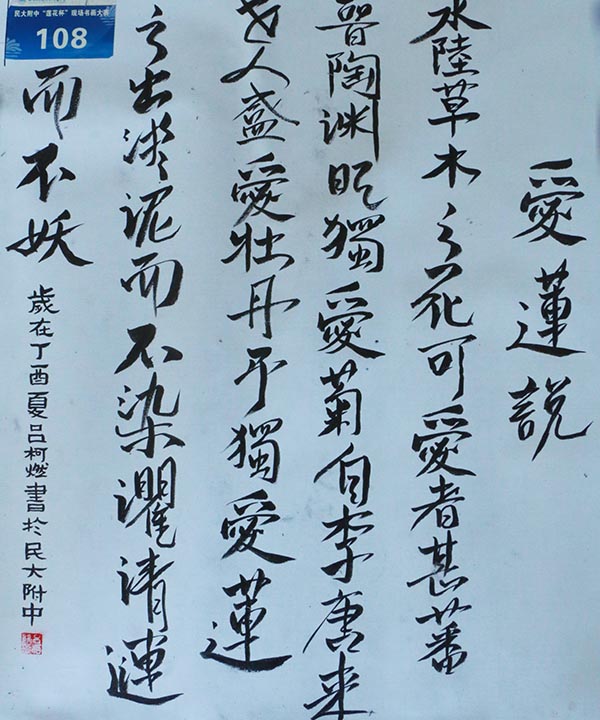 愛蓮說
水陸草木之花可愛者甚蕃
晋陶渊明獨愛菊自李唐来
世人盛愛牡丹予獨愛蓮
之出淤泥而不染濯清漣
而不妖
歲在丁酉夏吕柯燃書於民大附中
民大附中“莲花杯”现场书画大赛
108